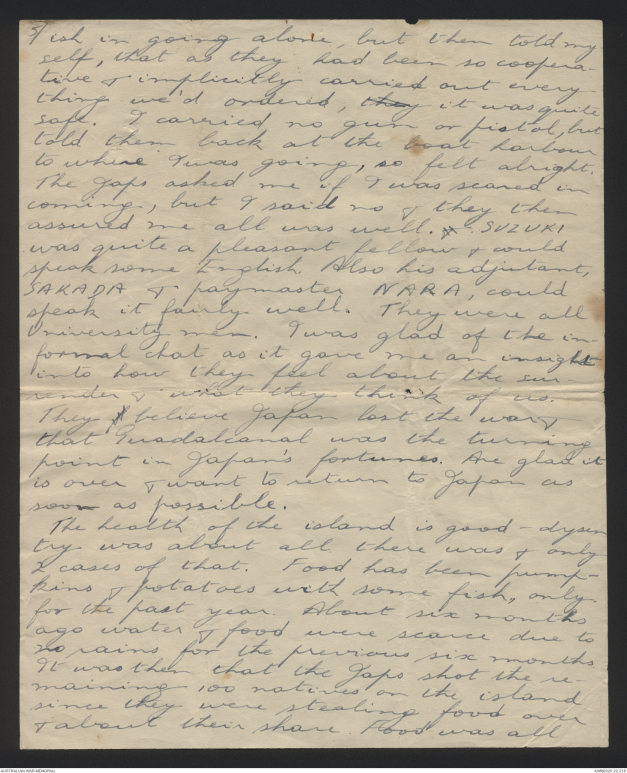 3/
ish in going alone, but then told my-
self, that as they had been so coopera-
tive & implicitly carried out every-
thing we'd ordered, they it was quite
safe. I carried no gun or pistol, but
told them back at the boat harbour
to where I was going, so felt alright.
The Japs asked me if I was scared in
coming, but I said no & they then
assured me all was well. SUZUKI
was quite a pleasant fellow & could
speak some English. Also his adjutant,
SAKADA & paymaster NARA, could
speak it fairly well. They were all
University men. I was glad of the in-
formal chat as it gave me an insight
into how they feel about the sur-
render & what they think of us.
They believe Japan lost the war &
that Guadalcanal was the turning
point in Japan's fortunes. Are glad it
is over & want to return to Japan as
soon as possible.
The health of the island is good - dysen
try was about all there was & only
2 cases of that. Food has been pump-
kins & potatoes with some fish, only
for the past year. About six months
ago water & food were scarce due to
no rains for the previous six months.
It was then that the Japs shot the re-
maining 100 natives on the island
since they were stealing food over
& about their share. Food was all
AUSTRALIAN WAR MEMORIAL